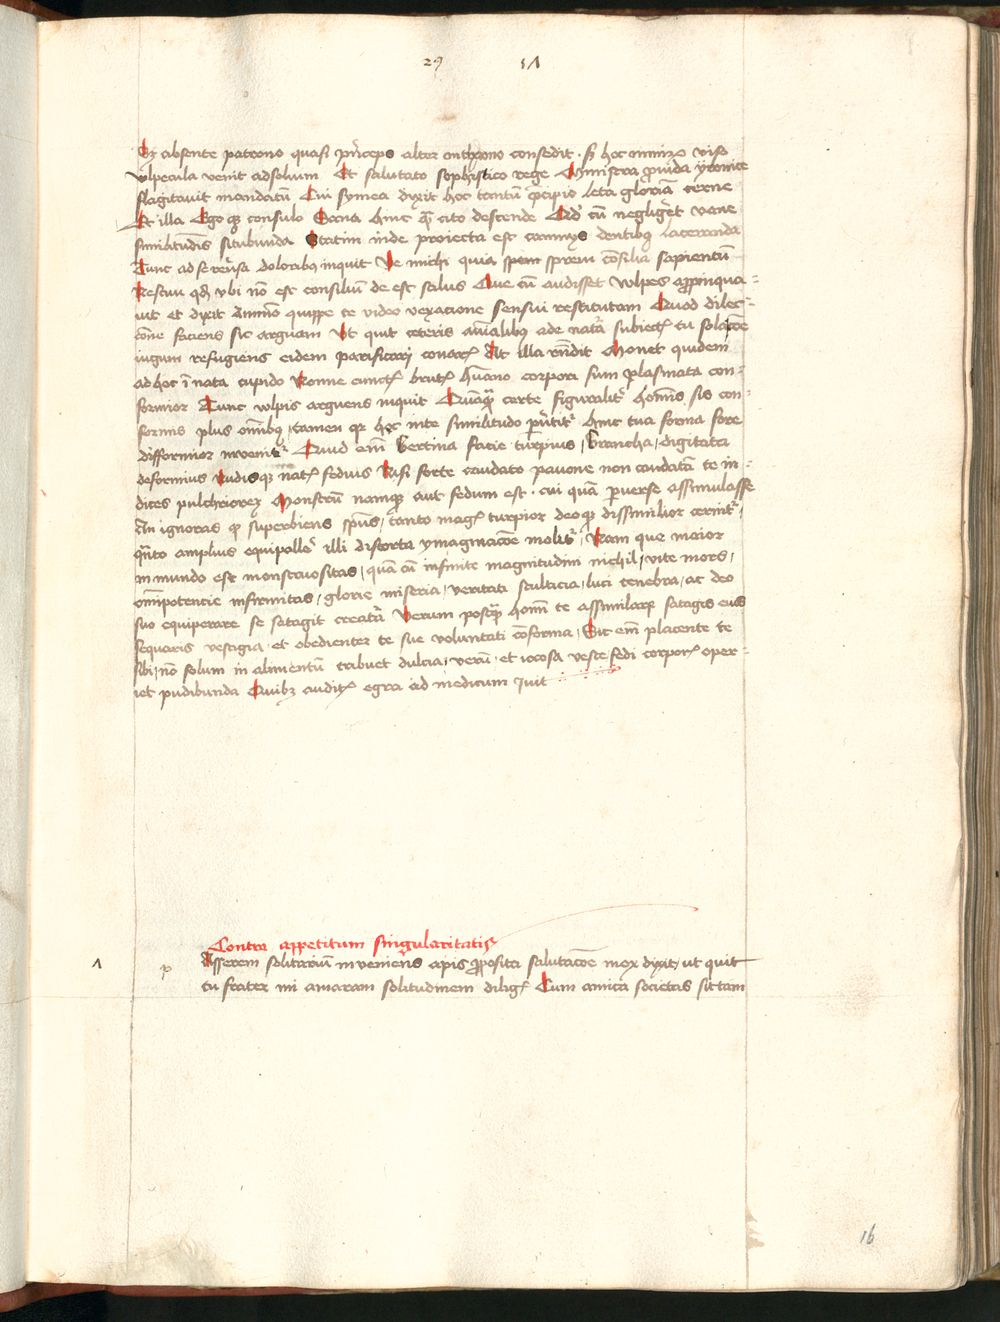 29 51
Et absente patrono quasi pri͛nceps alter in throno consedit . sȝ hoc viso
vulpecula venit ad solium Et salutato sophistico rege Aministra ꝓuida yronice
flagitauit mandatū Cui symea dyxit hoc tantū p̄cipio leta gloriā cerne
At illa Ego qȝ consulo Scena hinc cito descende Qd̕ cū negligͤret vane
similitudīs sitibunda Statim inde proiecta est dentibꝰ laceranda
Tunc ad se reuͤsa doloribꝰ inquit Ve michi quia spreui cōsilia sapientū
Nesciui qd̕ vbi nō est consiliū de est salus Que cū audisset vulpes appinqua-
uit et dyxit Animo quippe te video vexacione sensui restitutam Quod dilec-
cōne faciens sic arguam Vt quit ceteris aīalibꝰ ade nata subiectꝭ tu
iugum refugiens eidem conarꝭ At illa rn̄dit Monet quidem
ad hoc īnata cupido Nonne cunctꝭ brutꝭ hūano corpori sum plasmata con-
formior Tunc vulpis arguens inquit Quāqȝ carte figuralitͤ homīs sis con-
formis plus omībꝰ tamen qȝ hec inte similitudo hinc tua forma fore
difformior inuenitͬ Quid em̄ Certina facie turpius / brancha / digitata
deformius Nudisqȝ natꝭ fedius Nisi forte caudato pauone non caudatā te in-
dices pulchriorem Monstrū namqȝ aut fedum est . cui quā puerse assimulasse
An ignoras qȝ superbiens spūs / tanto magꝭ turpior deo qȝ dissimilior cernitͬ /
quāto amplius equipollēr illi distorta ymaginacōe molitͬ / Nam que maior
in mundo est monstruositas / quā cū infinite magnitudini nichil / vite mors /
omīpotencie infirmitas / glorie miseria / veritati stulticia / luci tenebra / ac deo
suo equiperare se satagit creatā Verum postqȝ homī te assimilare satagis eius
sequaris vestigia et obedienter te sue voluntati cōforma / Sic em̄ placente te
sibi / nō solum in alimentū tribuet dulcia / verū et iocosa veste fedi corporꝭ oper-
iet pudibunda Quibȝ auditꝭ egra ad medicum Iuit
Contra appetitum singularitatis
1 p Asserem solitariū inueniens apis ꝓposita salutacōe mox dyxit / ut quit
tu frater mi amaram solitudinem diligꝭ Cum amica societas sit tam
16